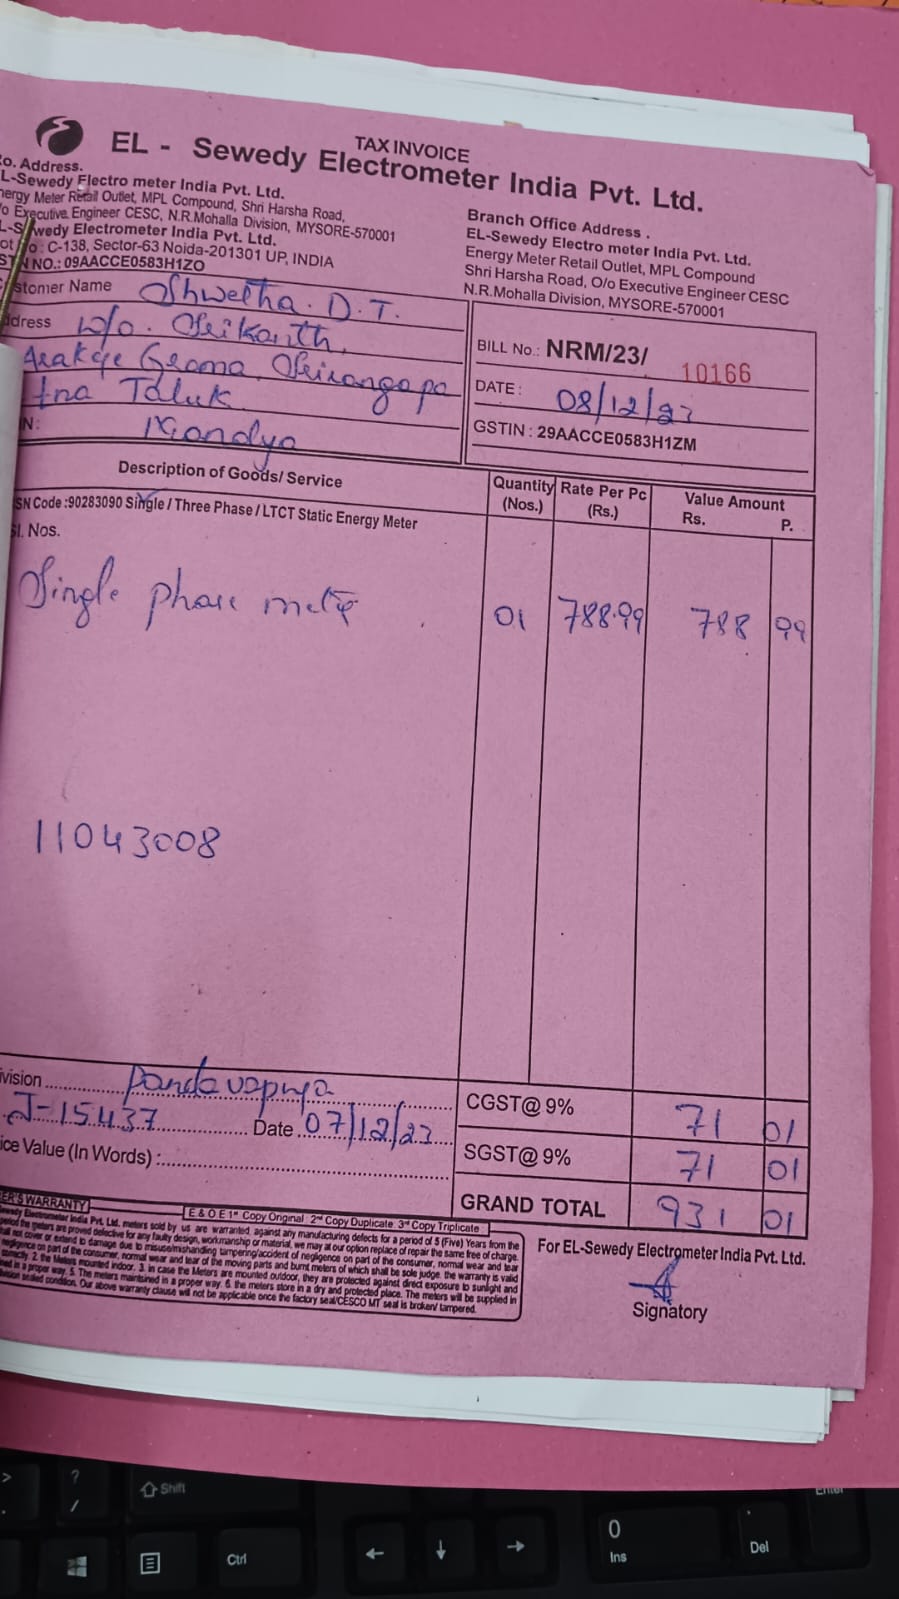 TAX INVOICE
EL - Sewedy Electrometer India Pvt. Ltd.
o. Address.
L-Sewedy Electro meter India Pvt. Ltd.
nergy Meter Retail Outlet, MPL Compound, Shri Harsha Road,
/o Executive Engineer CESC, N.R.Mohalla Division, MYSORE-570001
L-Sewedy Electrometer India Pvt. Ltd.
ot No : C-138, Sector-63 Noida-201301 UP, INDIA
STIN NO.: 09AACCE0583H1ZO
Branch Office Address .
EL-Sewedy Electro meter India Pvt. Ltd.
Energy Meter Retail Outlet, MPL Compound
Shri Harsha Road, O/o Executive Engineer CESC
N.R.Mohalla Division, MYSORE-570001
stomer Name Shwetha. D.T.
ddress W/o. Srikanth,
Arakere Grama Srirangapa
tna Taluk
N: Mandya
BILL No.: NRM/23/ 10166
DATE : 08/12/23
GSTIN : 29AACCE0583H1ZM
Description of Goods/ Service Quantity (Nos.) Rate Per Pc (Rs.) Value Amount Rs. P.
SN Code :90283090 Single / Three Phase / LTCT Static Energy Meter
Sl. Nos.
Single phase meter 01 788.99 788 99
11043008
ivision Pandavapura
J-15437 Date 07/12/23
ice Value (In Words) :
CGST@ 9% 71 01
SGST@ 9% 71 01
GRAND TOTAL 931 01
E & O E 1st Copy Original 2nd Copy Duplicate 3rd Copy Triplicate
ER'S WARRANTY
Sewedy Electrometer India Pvt. Ltd. meters sold by us are warranted against any manufacturing defects for a period of 5 (Five) Years from the
period the meters are proved defective for any faulty design, workmanship or material, we may at our option replace of repair the same free of charge.
not cover or extend to damage due to misuse/mishandling tampering/accident of negligence on part of the consumer, normal wear and tear
negligence on part of the consumer, normal wear and tear of the moving parts and burnt meters of which shall be sole judge. the warranty is valid
correctly. 2. the Meters mounted indoor. 3. in case the Meters are mounted outdoor, they are protected against direct exposure to sunlight and
in a proper way. 5. The meters maintained in a proper way. 6. the meters store in a dry and protected place. The meters will be supplied in
sealed condition. Our above warranty clause will not be applicable once the factory seal/CESCO MT seal is broken/ tampered.
For EL-Sewedy Electrometer India Pvt. Ltd.
Signatory
> ? Shift Enter
. /
Ctrl 0 Ins . Del